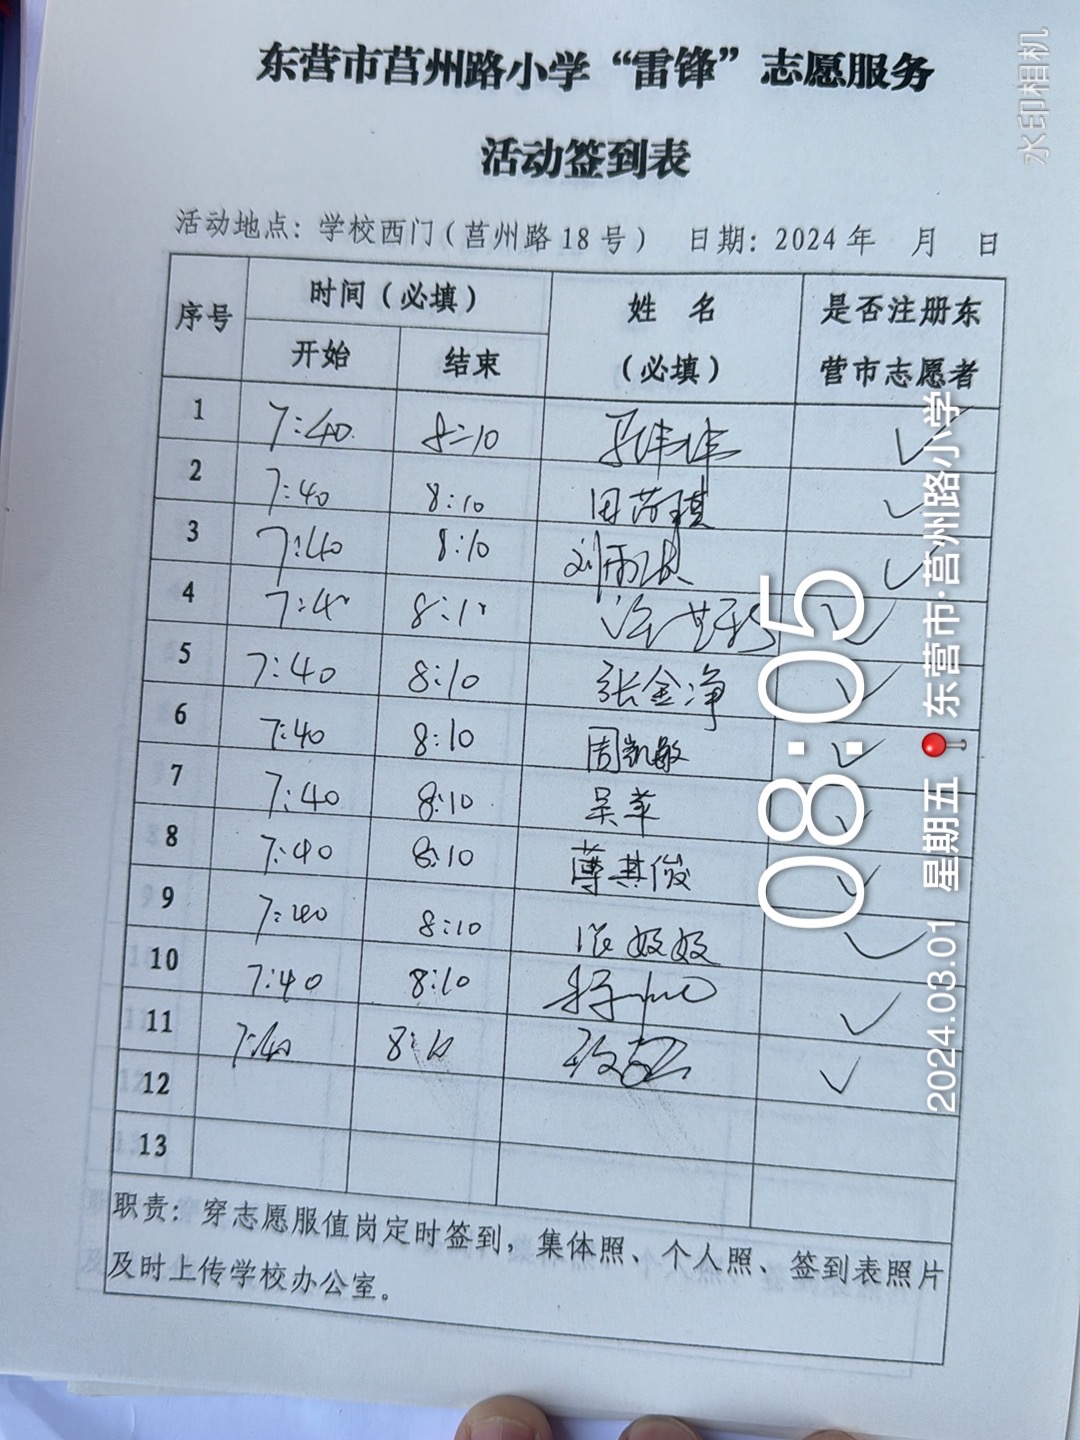 东营市莒州路小学“雷锋”志愿服务
活动签到表
活动地点：学校西门（莒州路18号） 日期：2024年 月 日
序号 时间（必填） 姓 名 是否注册东
开始 结束 （必填） 营市志愿者
1 7:40 8:10 ✓
2 7:40 8:10 ✓
3 7:40 8:10 ✓
4 ✓
5 7:40 8:10 张金净 ✓
6 7:40 8:10 周凯敏 ✓
7 7:40 8:10 吴苹 ✓
8 7:40 8:10 薄其俊 ✓
9 7:40 8:10 ✓
10 7:40 8:10 ✓
11 7:40 8:10 ✓
12
13
职责：穿志愿服值岗定时签到，集体照、个人照、签到表照片
及时上传学校办公室。
水印相机
08:05
2024.03.01 星期五 东营市·莒州路小学